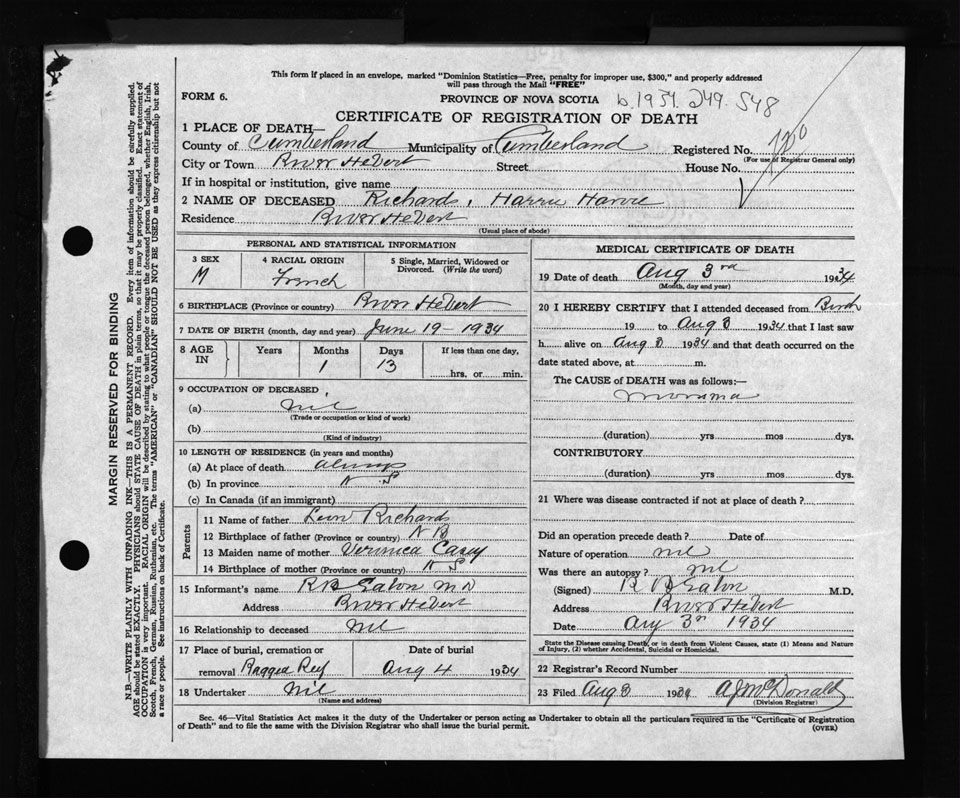 This form if placed in an envelope, marked "Dominion Statistics—Free, penalty for improper use, $300," and properly addressed
will pass through the Mail "FREE"
FORM 6.
PROVINCE OF NOVA SCOTIA
CERTIFICATE OF REGISTRATION OF DEATH
1 PLACE OF DEATH—
County of Cumberland Municipality of Cumberland Registered No.
(For use of Registrar General only)
City or Town River Hebert Street House No.
If in hospital or institution, give name
2 NAME OF DECEASED Richards, Harrie Harvie
Residence River Hebert
(Usual place of abode)
PERSONAL AND STATISTICAL INFORMATION
3 SEX
M
4 RACIAL ORIGIN
French
5 Single, Married, Widowed or
Divorced. (Write the word)
6 BIRTHPLACE (Province or country) River Hebert
7 DATE OF BIRTH (month, day and year) June 19 - 1934
8 AGE
IN
Years Months Days If less than one day,
1 13
hrs. or min.
9 OCCUPATION OF DECEASED
(a) nil
(Trade or occupation or kind of work)
(b)
(Kind of industry)
10 LENGTH OF RESIDENCE (in years and months)
(a) At place of death always
(b) In province N.S
(c) In Canada (if an immigrant)
Parents
11 Name of father Leon Richards
12 Birthplace of father (Province or country) N B
13 Maiden name of mother Veronica Casey
14 Birthplace of mother (Province or country) N S
15 Informant's name R B Eaton M D
Address River Hebert
16 Relationship to deceased nil
17 Place of burial, cremation or
removal Ragged Reef
Date of burial
Aug 4 1934
18 Undertaker nil
(Name and address)
MEDICAL CERTIFICATE OF DEATH
19 Date of death Aug 3rd 1934
(Month, day and year)
20 I HEREBY CERTIFY that I attended deceased from Birth
19 to Aug 3 1934 that I last saw
h alive on Aug 3 1934 and that death occurred on the
date stated above, at m.
The CAUSE OF DEATH was as follows:—
(duration) yrs mos dys.
CONTRIBUTORY
(duration) yrs mos dys.
21 Where was disease contracted if not at place of death?
Did an operation precede death? Date of
Nature of operation nil
Was there an autopsy? nil
(Signed) R B Eaton M.D.
Address River Hebert
Date Aug 3rd 1934
State the Disease causing Death, or in death from Violent Causes, state (1) Means and Nature
of Injury, (2) whether Accidental, Suicidal or Homicidal.
22 Registrar's Record Number
23 Filed Aug 3 1934 A J McDonald
(Division Registrar)
Sec. 46—Vital Statistics Act makes it the duty of the Undertaker or person acting as Undertaker to obtain all the particulars required in the "Certificate of Registration
of Death" and to file the same with the Division Registrar who shall issue the burial permit.
(OVER)
MARGIN RESERVED FOR BINDING
N.B.—WRITE PLAINLY WITH UNFADING INK—THIS IS A PERMANENT RECORD. Every item of information should be carefully supplied.
AGE should be stated EXACTLY. PHYSICIANS should STATE CAUSE OF DEATH in plain terms, so that it may be properly classified. Exact statement of
OCCUPATION is very important. RACIAL ORIGIN will be described by stating to what people or tongue the deceased person belonged, whether English, Irish,
Scotch, French, German, Russian, Ruthenian, etc. The terms "AMERICAN" or "CANADIAN" SHOULD NOT BE USED as they express citizenship but not
a race or people. See instructions on back of Certificate.